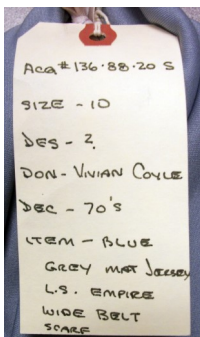 ACQ #136.88.20 S
SIZE - 10
DES - ?
DON - VIVIAN COYLE
DEC - 70's
ITEM - BLUE
GREY MAT JERSEY
L.S. EMPIRE
WIDE BELT
SCARF